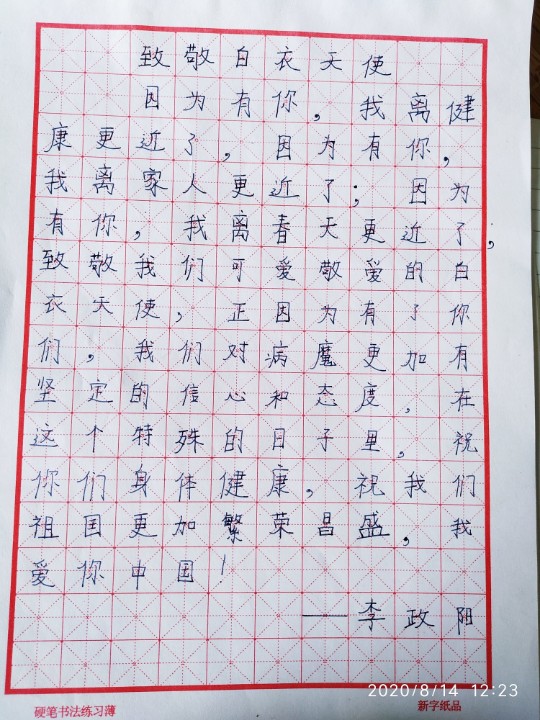 致敬白衣天使
因为有你，我离健
康更近了，因为有你，
我离家人更近了；因为
有你，我离春天更近了，
致敬我们可爱敬爱的白
衣天使，正因为有了你
们，我们对病魔更加有
坚定的信心和态度，在
这个特殊的日子里，祝
你们身体健康，祝我们
祖国更加繁荣昌盛，我
爱你中国！
——李政阳
2020/8/14 12:23
硬笔书法练习薄 新字纸品